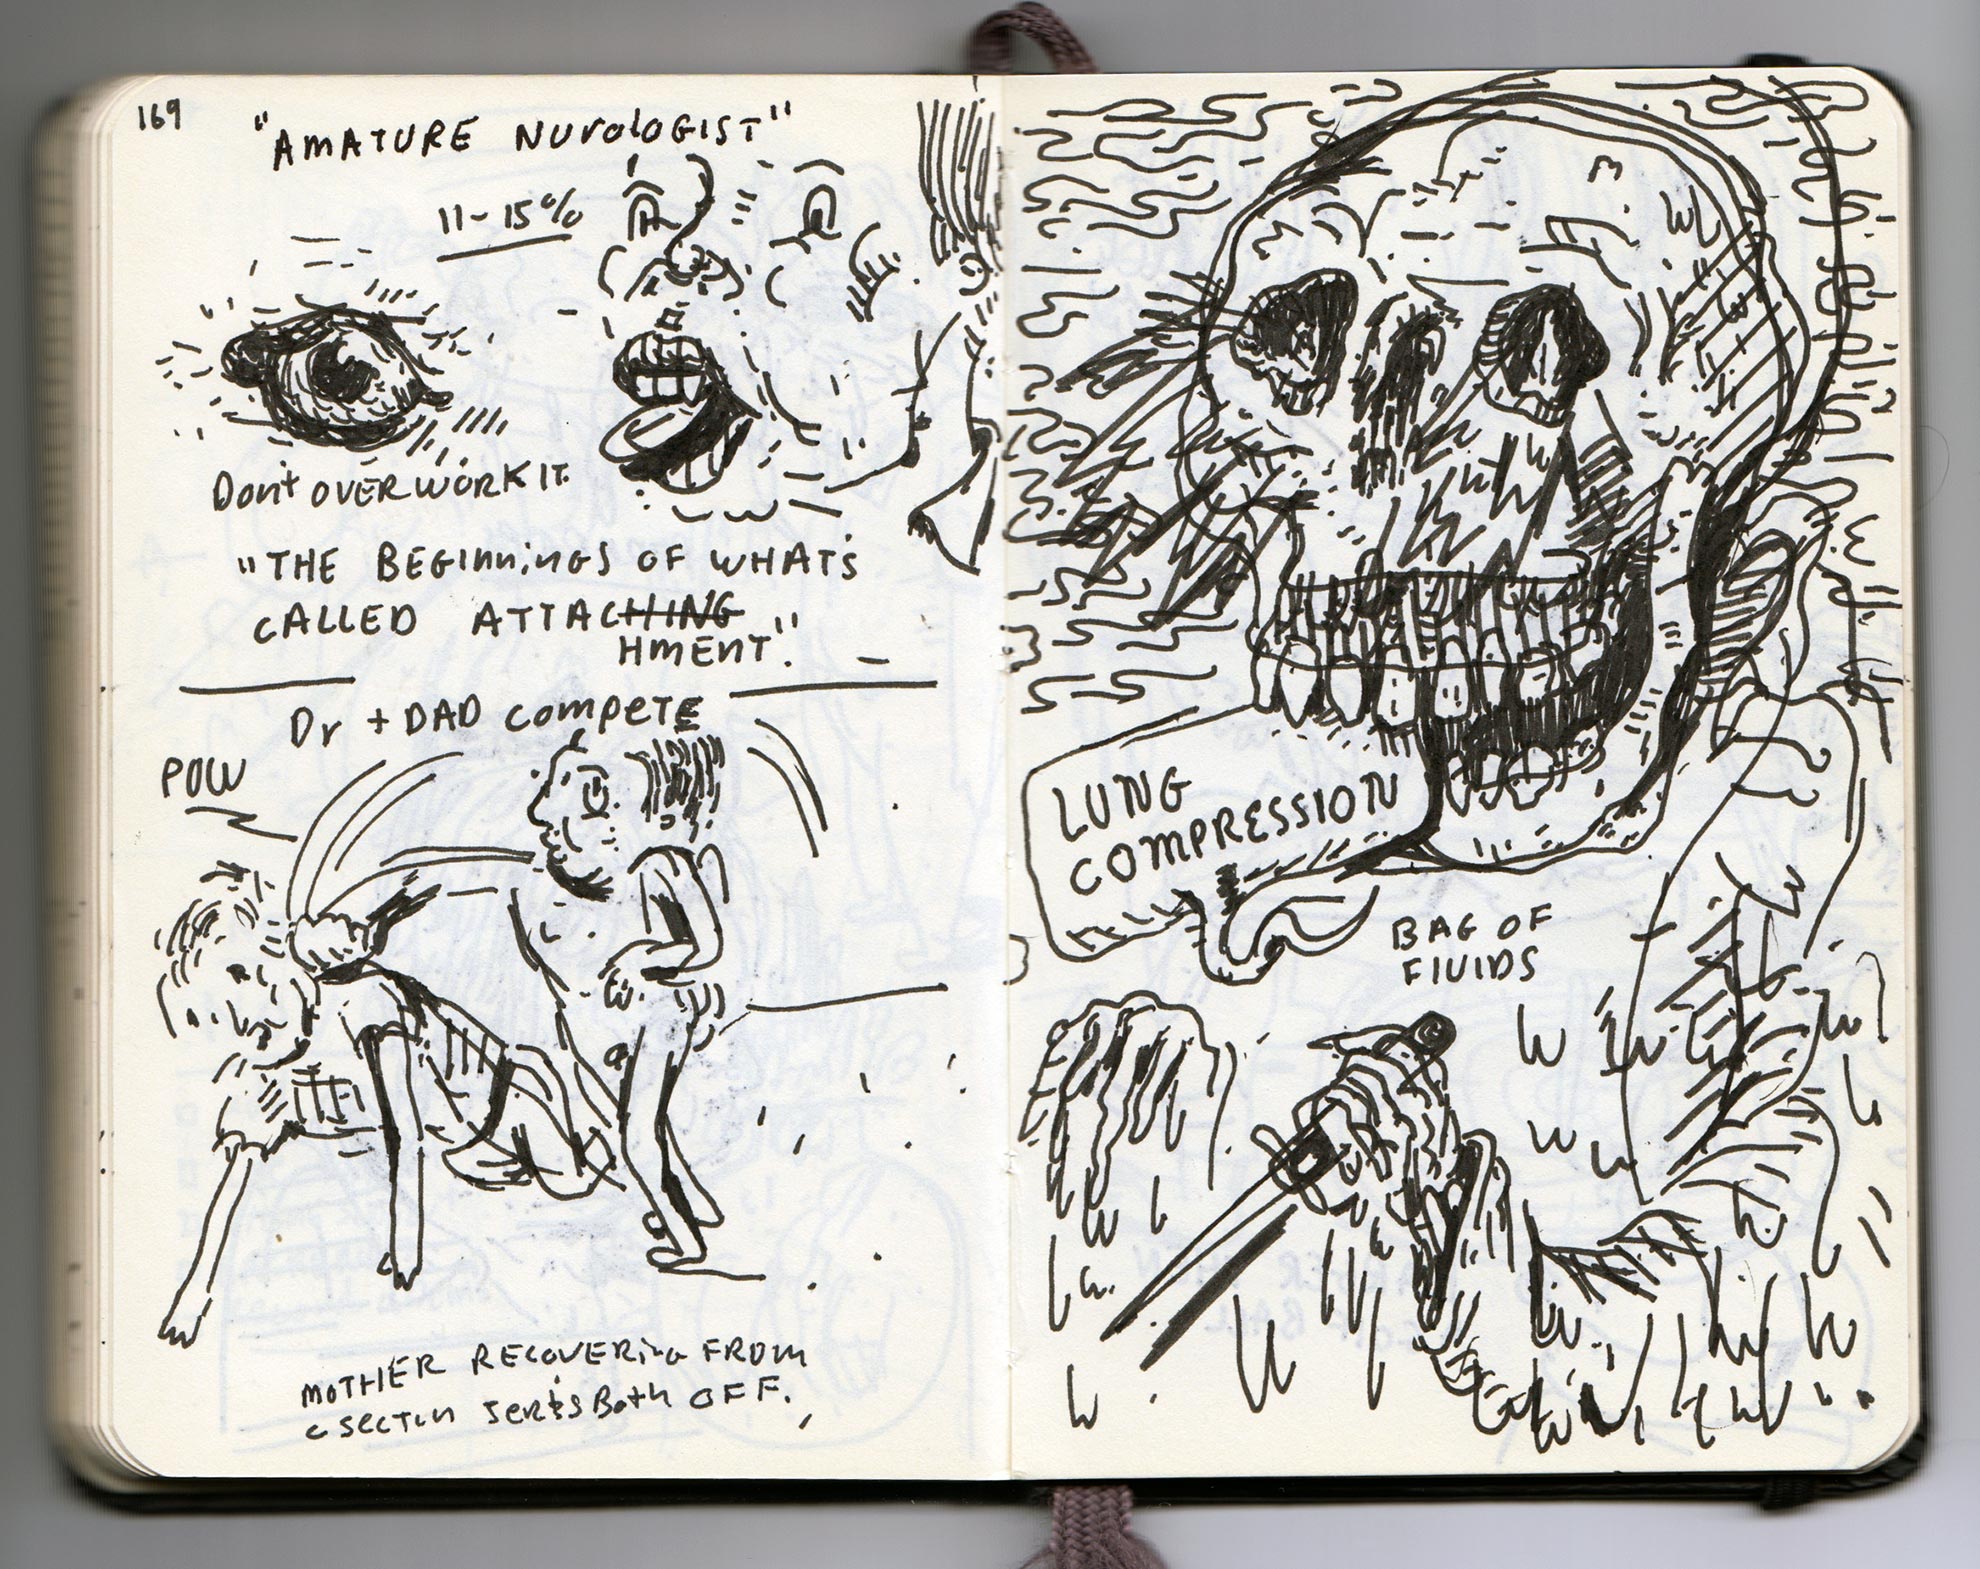 169
"AMATURE NUROLOGIST"
11-15%
Don't OVERWORK IT.
"THE BEGINNINGS OF WHAT'S
CALLED ATTACHING
HMENT".
Dr + DAD COMPETE
POW
MOTHER RECOVERING FROM
C SECTIN Serks Both OFF.
LUNG
COMPRESSION
BAG OF
FLUIDS